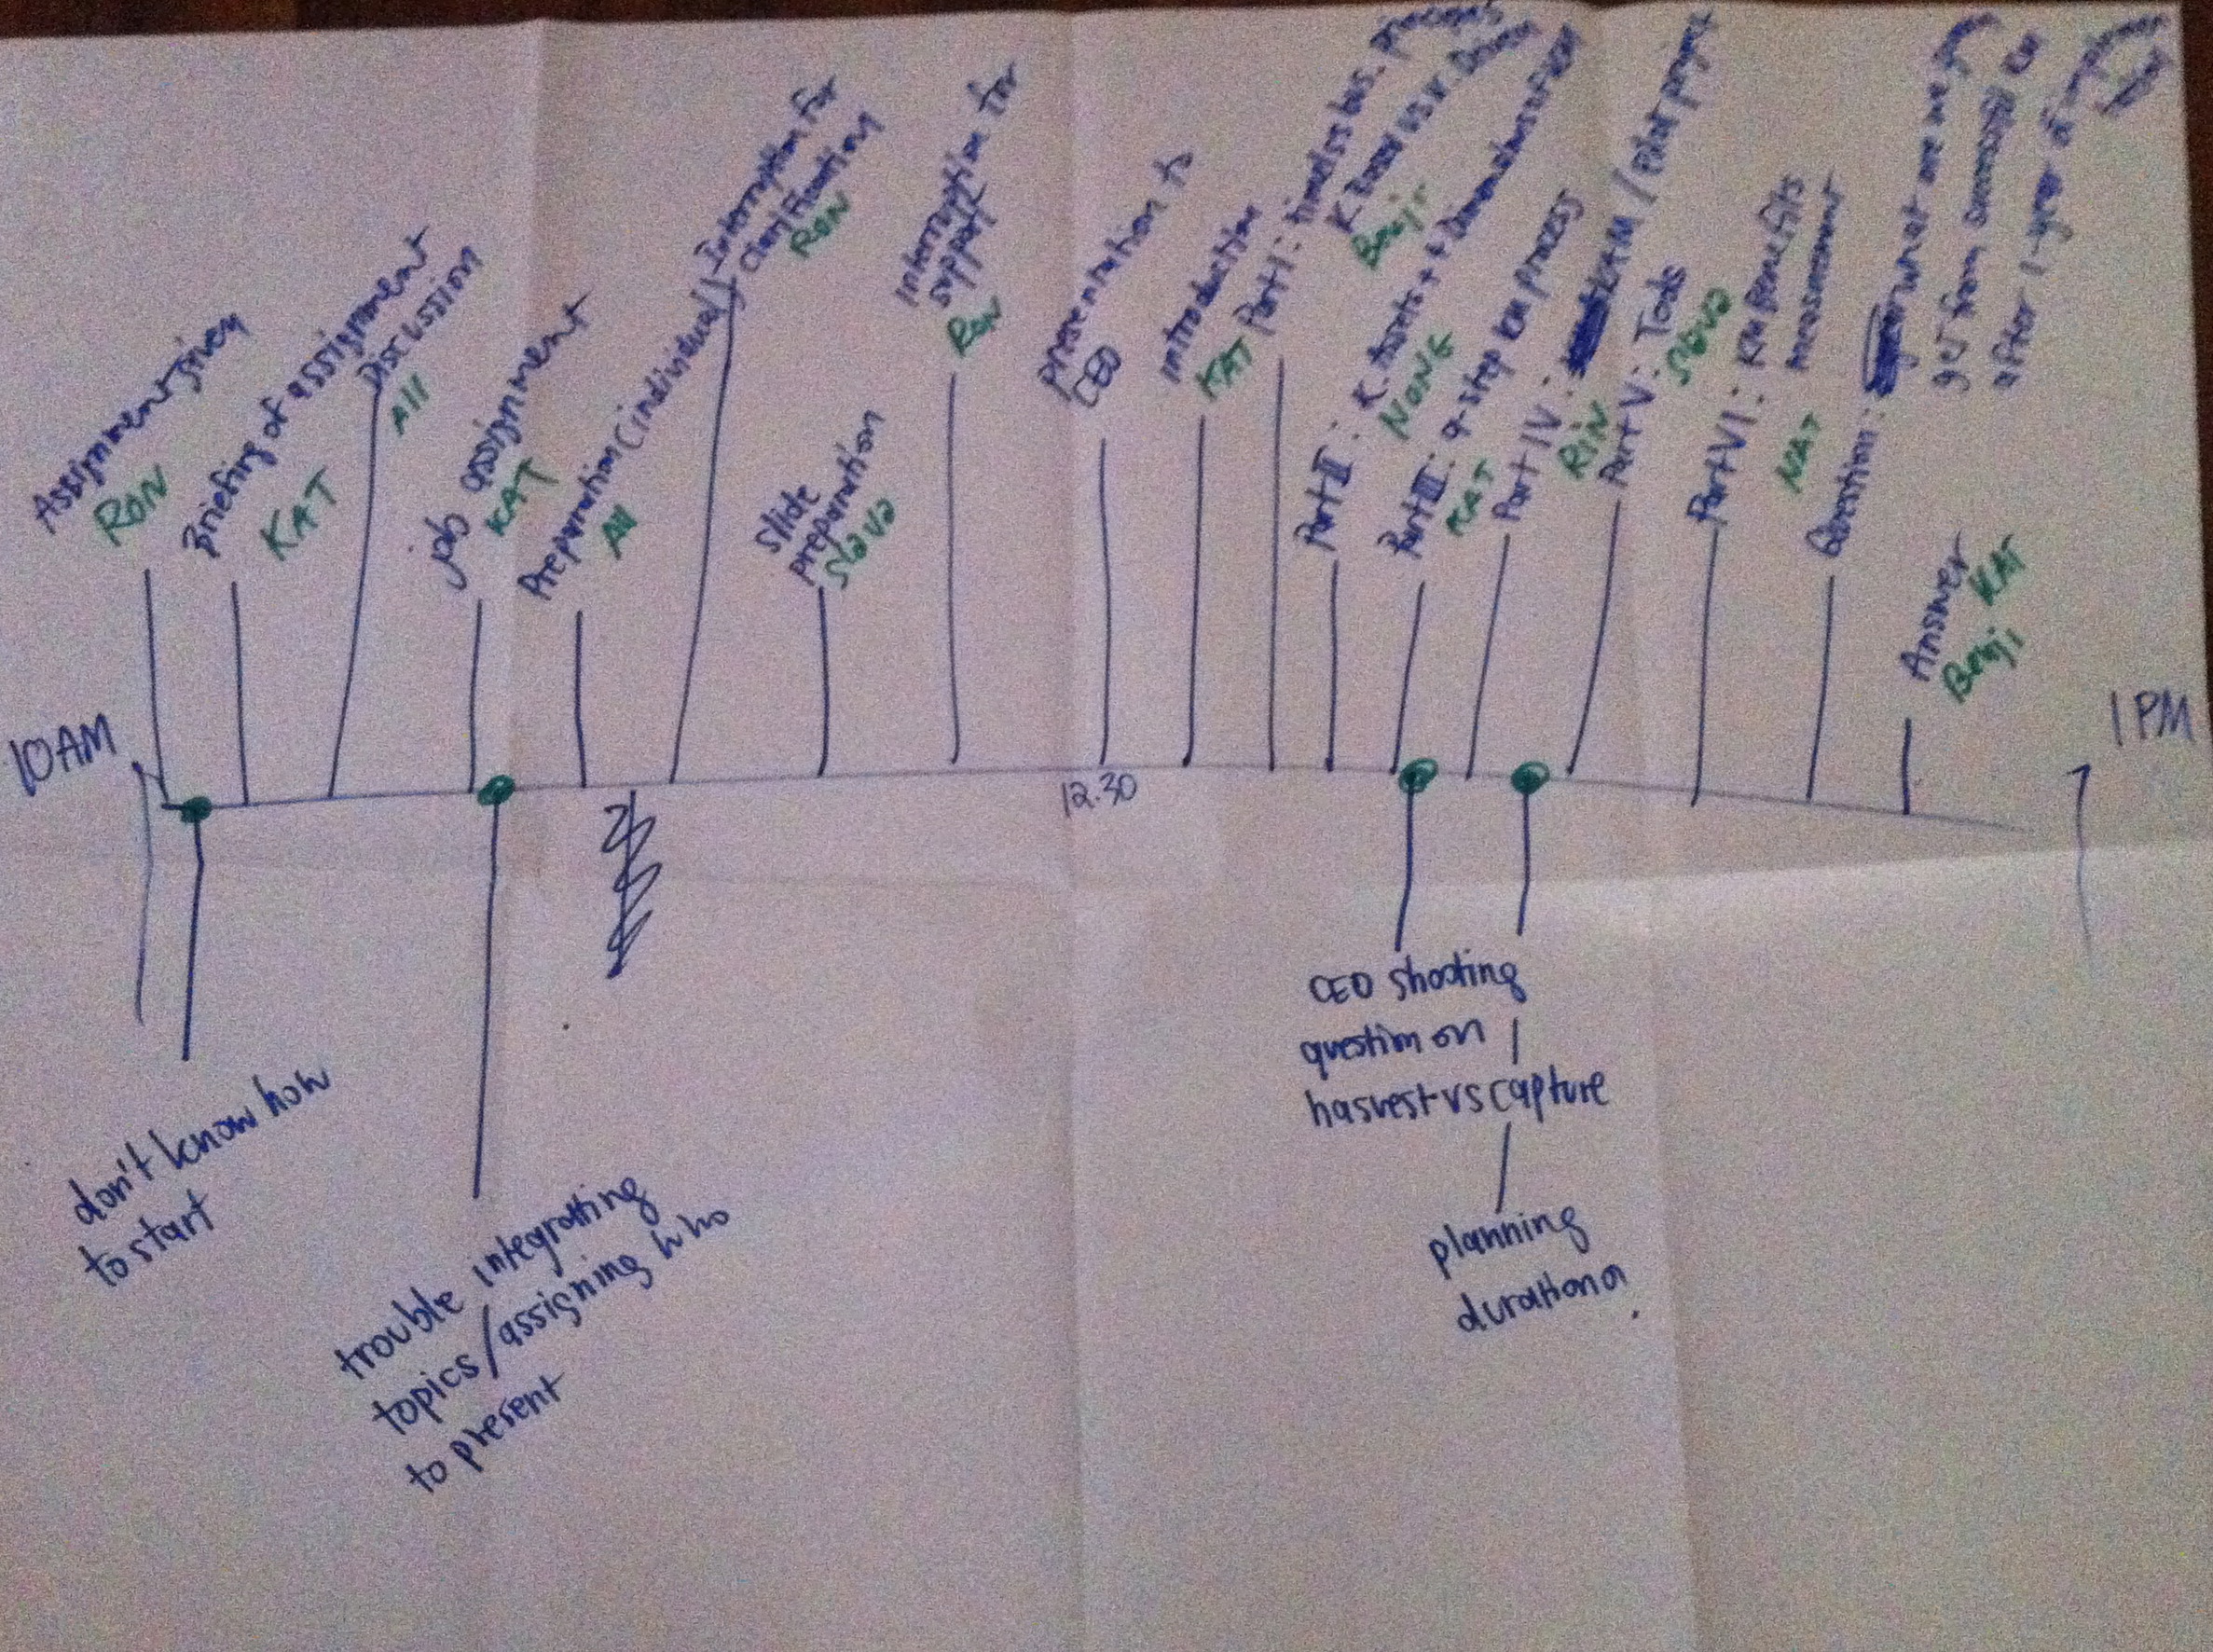 10 AM
Assignment given
RON
Briefing of assignment
KAT
Discussion
All
job assignment
KAT
Preparation (individual)
All
Interruption for
clarification
RON
slide
preparation
Slava
Interruption for
support
Ron
presentation to
CEO
12.30
introduction
KAT
Part I:
vs bus.
K
Benji
Part II: K. Assets +
NONG
Part III: 9-step KM process
KAT
Part IV: KM / Pilot project
RIN
Part V: Tools
Slava
Part VI: KM Benefits
measurement
KAT
Question: what are we
get from successful KM
after 1-year
Answer KAT
Benji
1 PM
don't know how
to start
trouble integratting
topics / assigning who
to present
CEO shooting
question on
hasvest vs capture
planning
duration